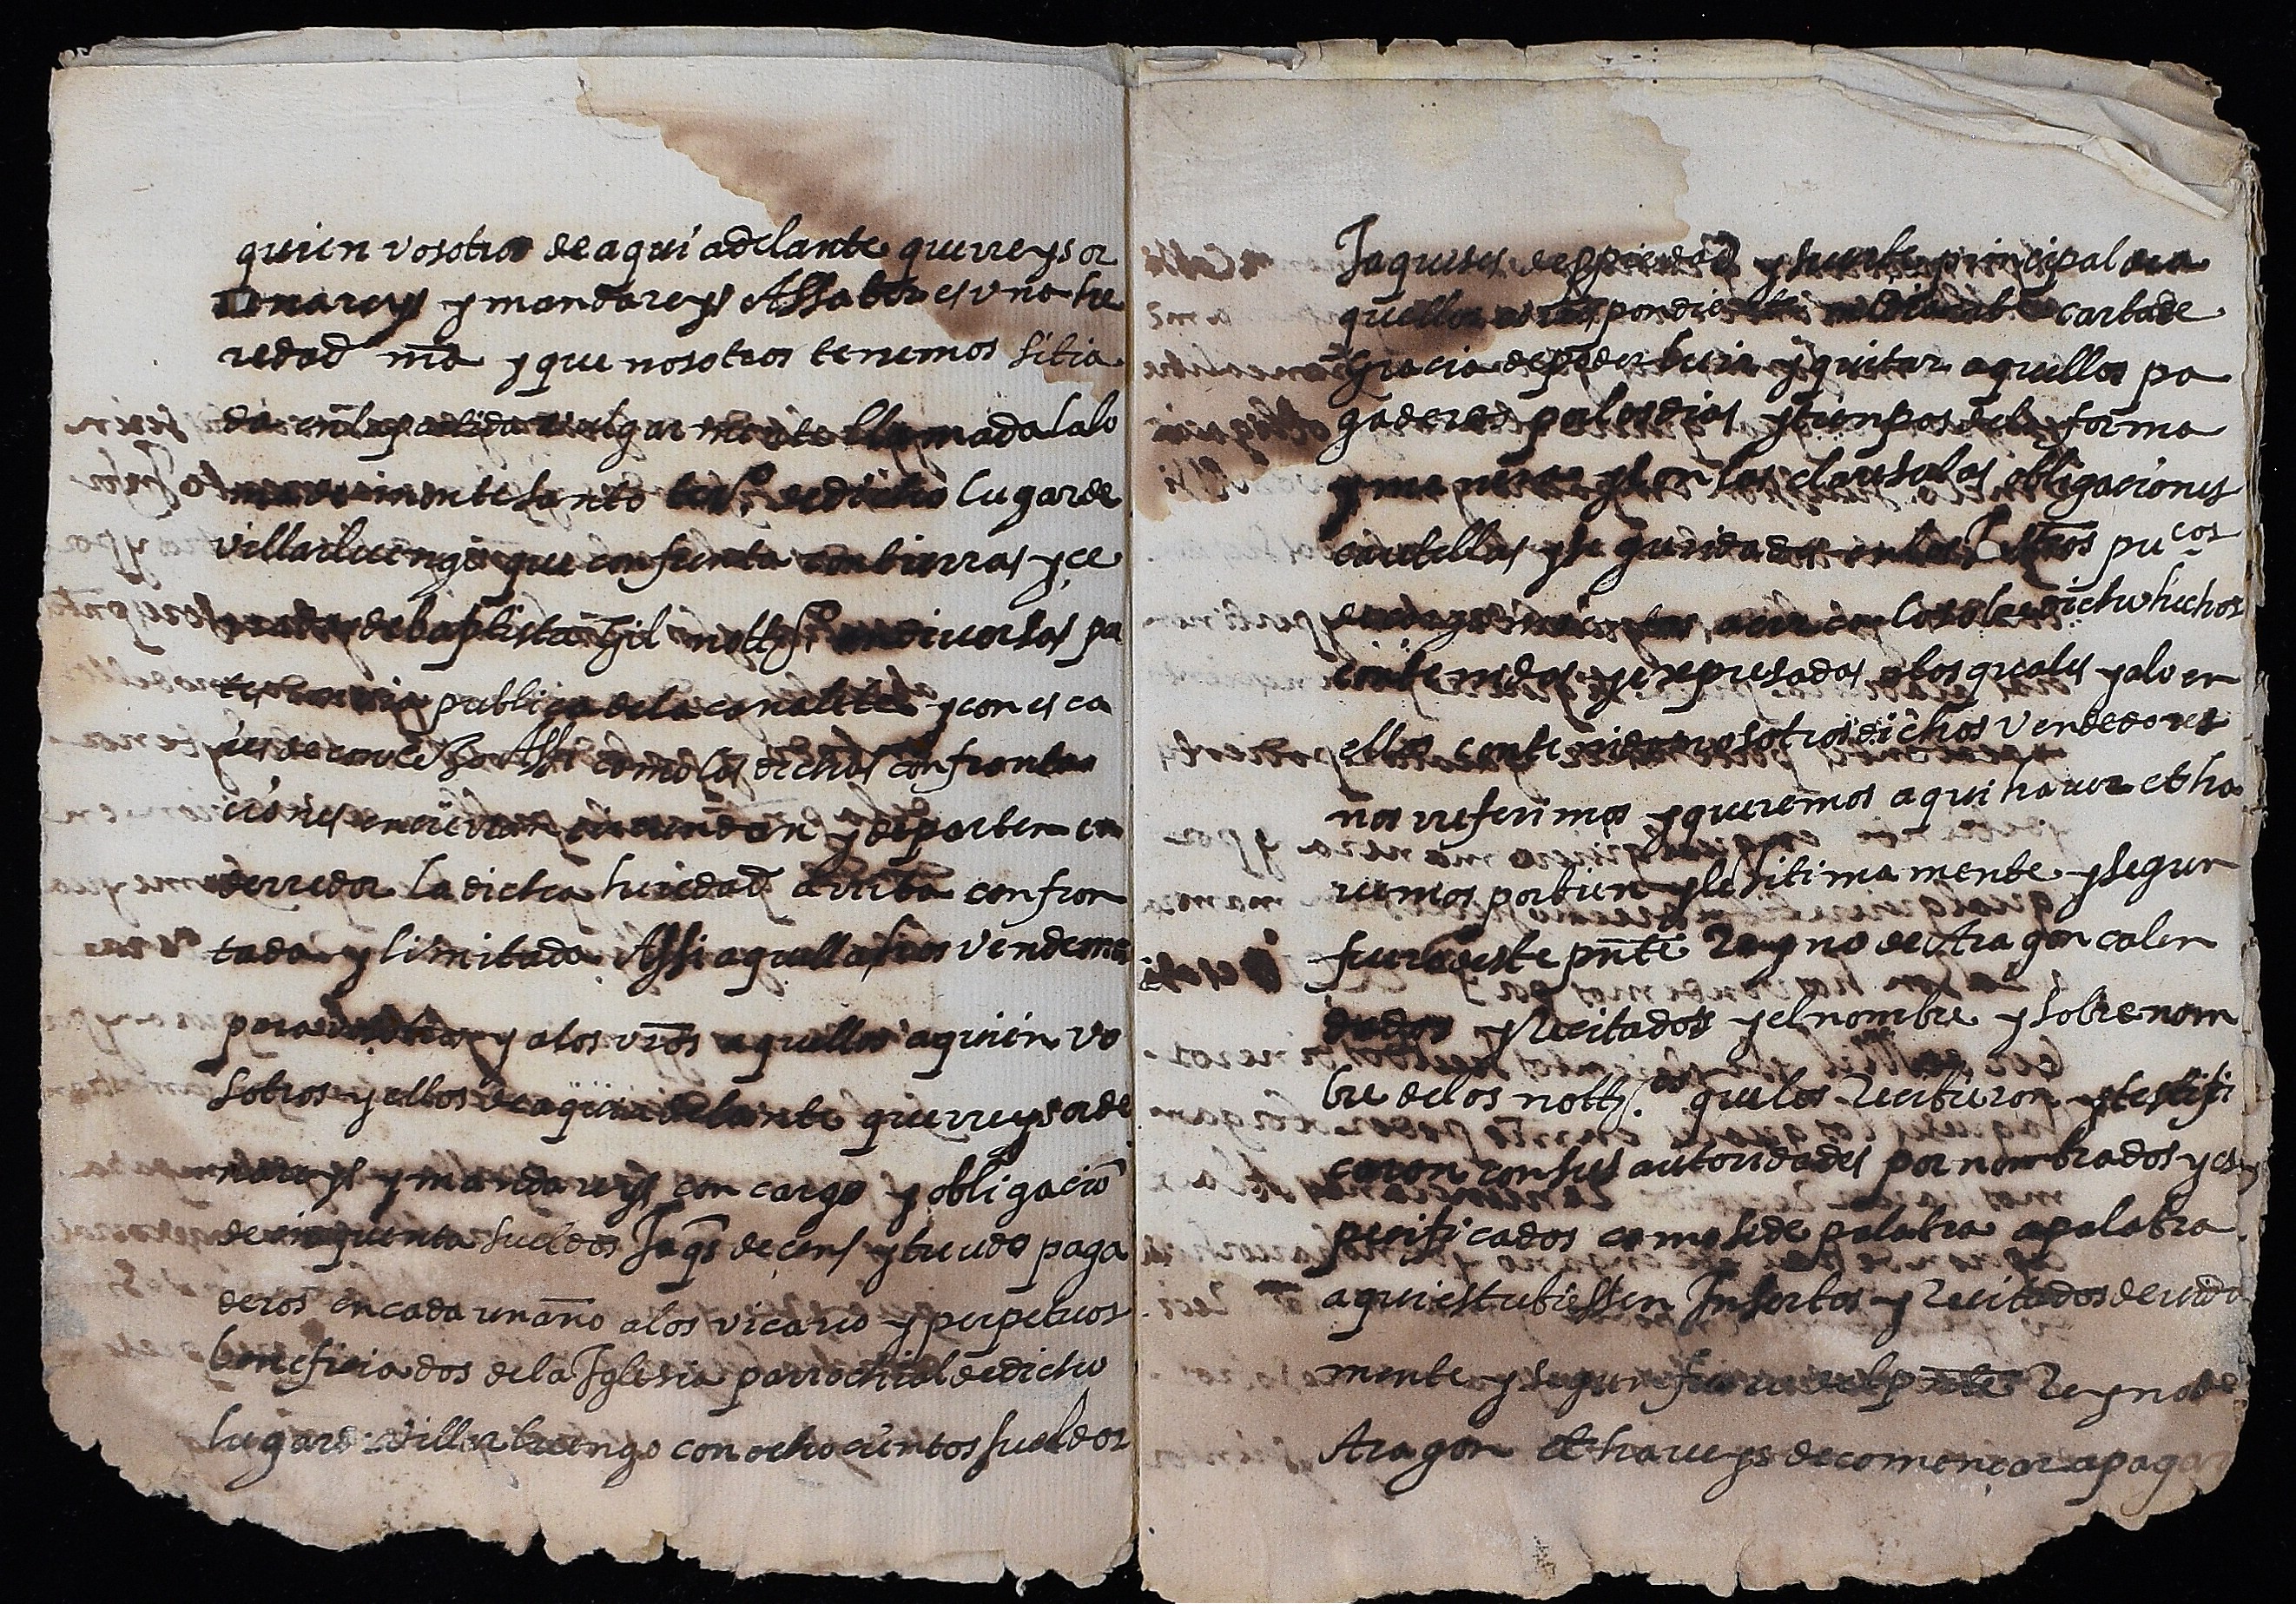 quien vosotros de aqui adelante querreys or
denareys y mandareys Assaber es una he
redad nr̄a y que nosotros tenemos sitia
da en la partida vulgarmente llamada la lo
de monte santo ter.º de dicho lugar de
villarluengo que confrenta con tierras y ce
rrada de baptista Gil nott.º en diversas pa
tes con via publica de la canaleta y con es ca
de concejo Assi como las dichas confronta
ciones encierran circundan y departen en
derredor la dicha heredad arriba confron
tada y limitada Assi aquella hos vendemos
para vosotros y a los vr̄os aquellos a quien vo
sotros y ellos de aqui adelante querreys orde
nareys y mandareys con cargo y obligacio͂
de cinquenta sueldos Jaq̄s de cens y treudo paga
deros en cada un año a los vicario y perpetuos
beneficiados de la Iglesia parrochial de dicho
lugar de villarluengo con ochocientos sueldos
Jaqueses de propiedad y suerte principal a a
quellos correspondientes mediante carta de
gracia de poder luir y quitar aquellos pa
gaderos por los dias y tiempos de la forma
y manera y con las clausulas obligaciones
cautellas y seguridades en los Instr̄os pu.cos
de acerca lo sobredicho hechos
contenidas y expresadas a los quales y a lo en
ellos contenido nosotros dichos vendedores
nos referimos y queremos aqui haver et ha
vemos por bien y legitimamente y segun
fuero deste pn̄te Reyno de Aragon calen
dados y Recitados y el nombre y sobrenom
bre de los nott.os que los Recibieron y testifi
caron con sus autoridades por nombrados y es
pecificados como si de palabra a palabra
aqui estubiessen Insertos y Recitados devida
mente y segun fuero del pn̄te Reyno de
Aragon et haveys de començar a pagar